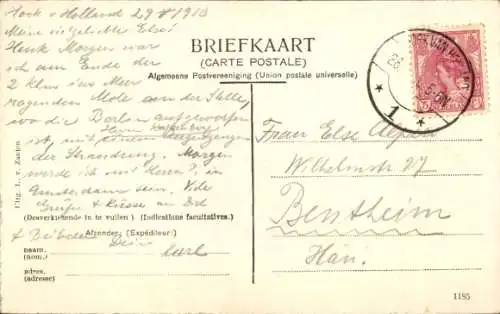 Hoek v Holland 29/V 1910
Meine vielgeliebte Else!
Heute Morgen war
ich am Ende der
2 klm ins Meer
ragenden Mole an der Stelle,
wo die Berlin aufgeworfen
ist, mit
der Strandung. Morgen
werde ich mit Herrn in
Amsterdam sein. Viele
Grüße & Küsse an Dich
& Dein
Karl
BRIEFKAART
(CARTE POSTALE)
Algemeene Postvereeniging (Union postale universelle)
Uitg. J. v. Zanten
(Desverkiezende in te vullen) (Indications facultatives.)
Afzender: (Expéditeur:)
naam,
(nom,)
adres,
(adresse)
1
Frau Else
Wilhelmstr 27
Bentheim
Han.
1185